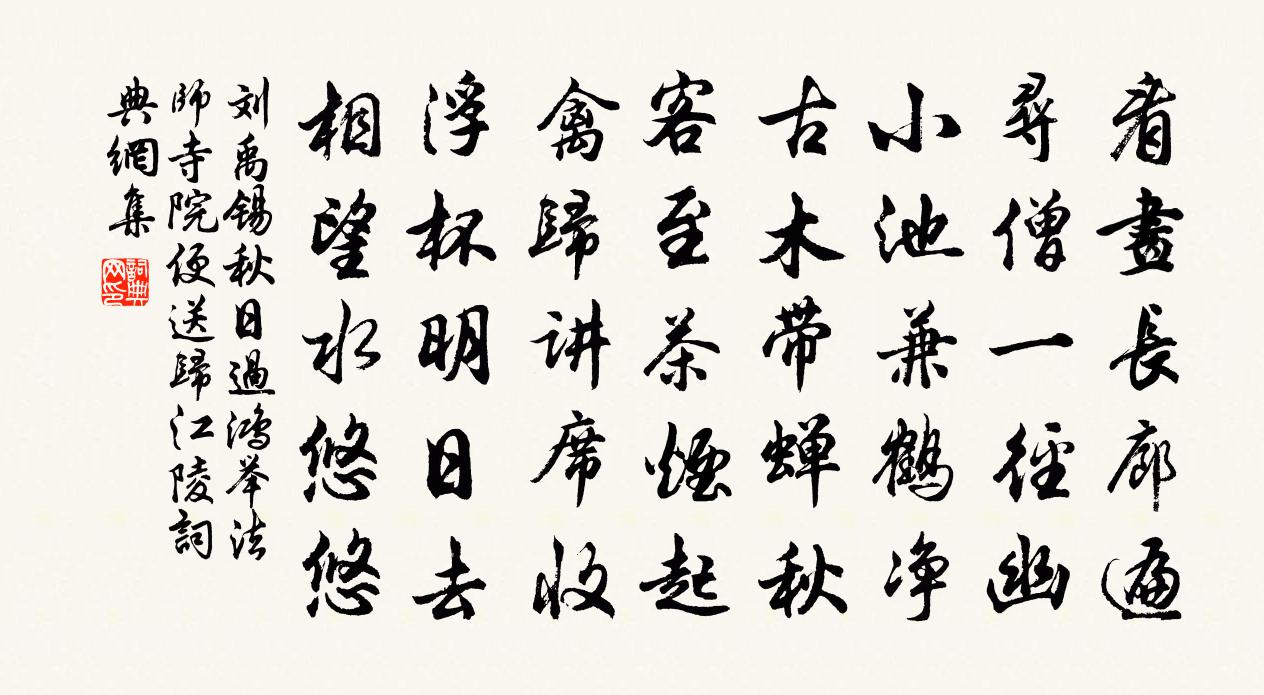 看畫長廊遍
尋僧一徑幽
小池兼鶴净
古木带蝉秋
客至茶煙起
禽歸讲席收
浮杯明日去
相望水悠悠
刘禹锡秋日過鴻举法
師寺院便送歸江陵詞
典網集
詞典网印